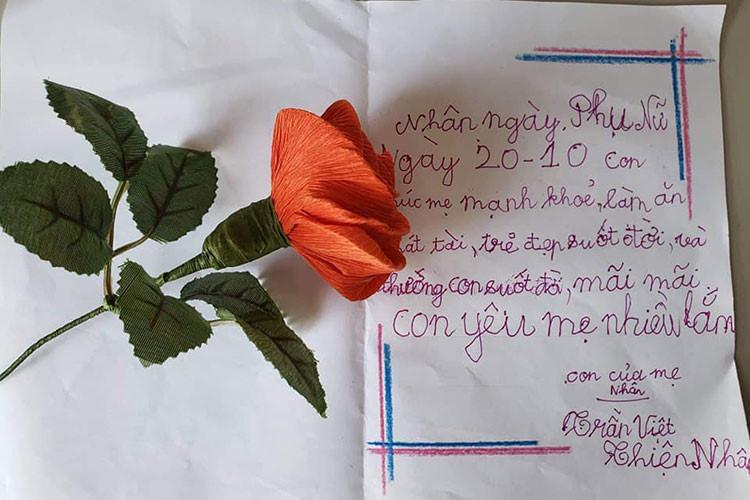 Nhân ngày. Phụ Nữ
Ngày 20-10 con
úc mẹ mạnh khoẻ, làm ăn
át tài, trẻ đẹp suốt đời, và
thương con suốt đời, mãi mãi.
con yêu mẹ nhiều lắm
con của mẹ
Nhân
Trần Việt
Thiện Nhâ